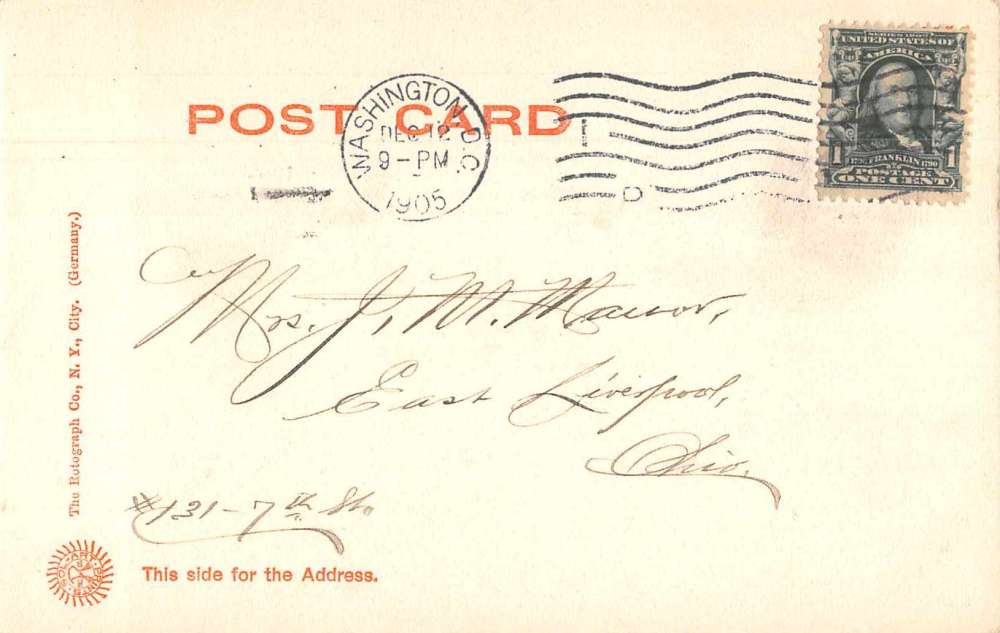 POST CARD
WASHINGTON, D.C.
DEC 12
9-PM
1905
D
SERIES 1902
UNITED STATES OF
AMERICA
1706 FRANKLIN 1790
1 POSTAGE 1
ONE CENT
Mrs. J. M. Manor,
East Liverpool,
Ohio.
#131-7th St.
The Rotograph Co., N. Y., City. (Germany.)
This side for the Address.